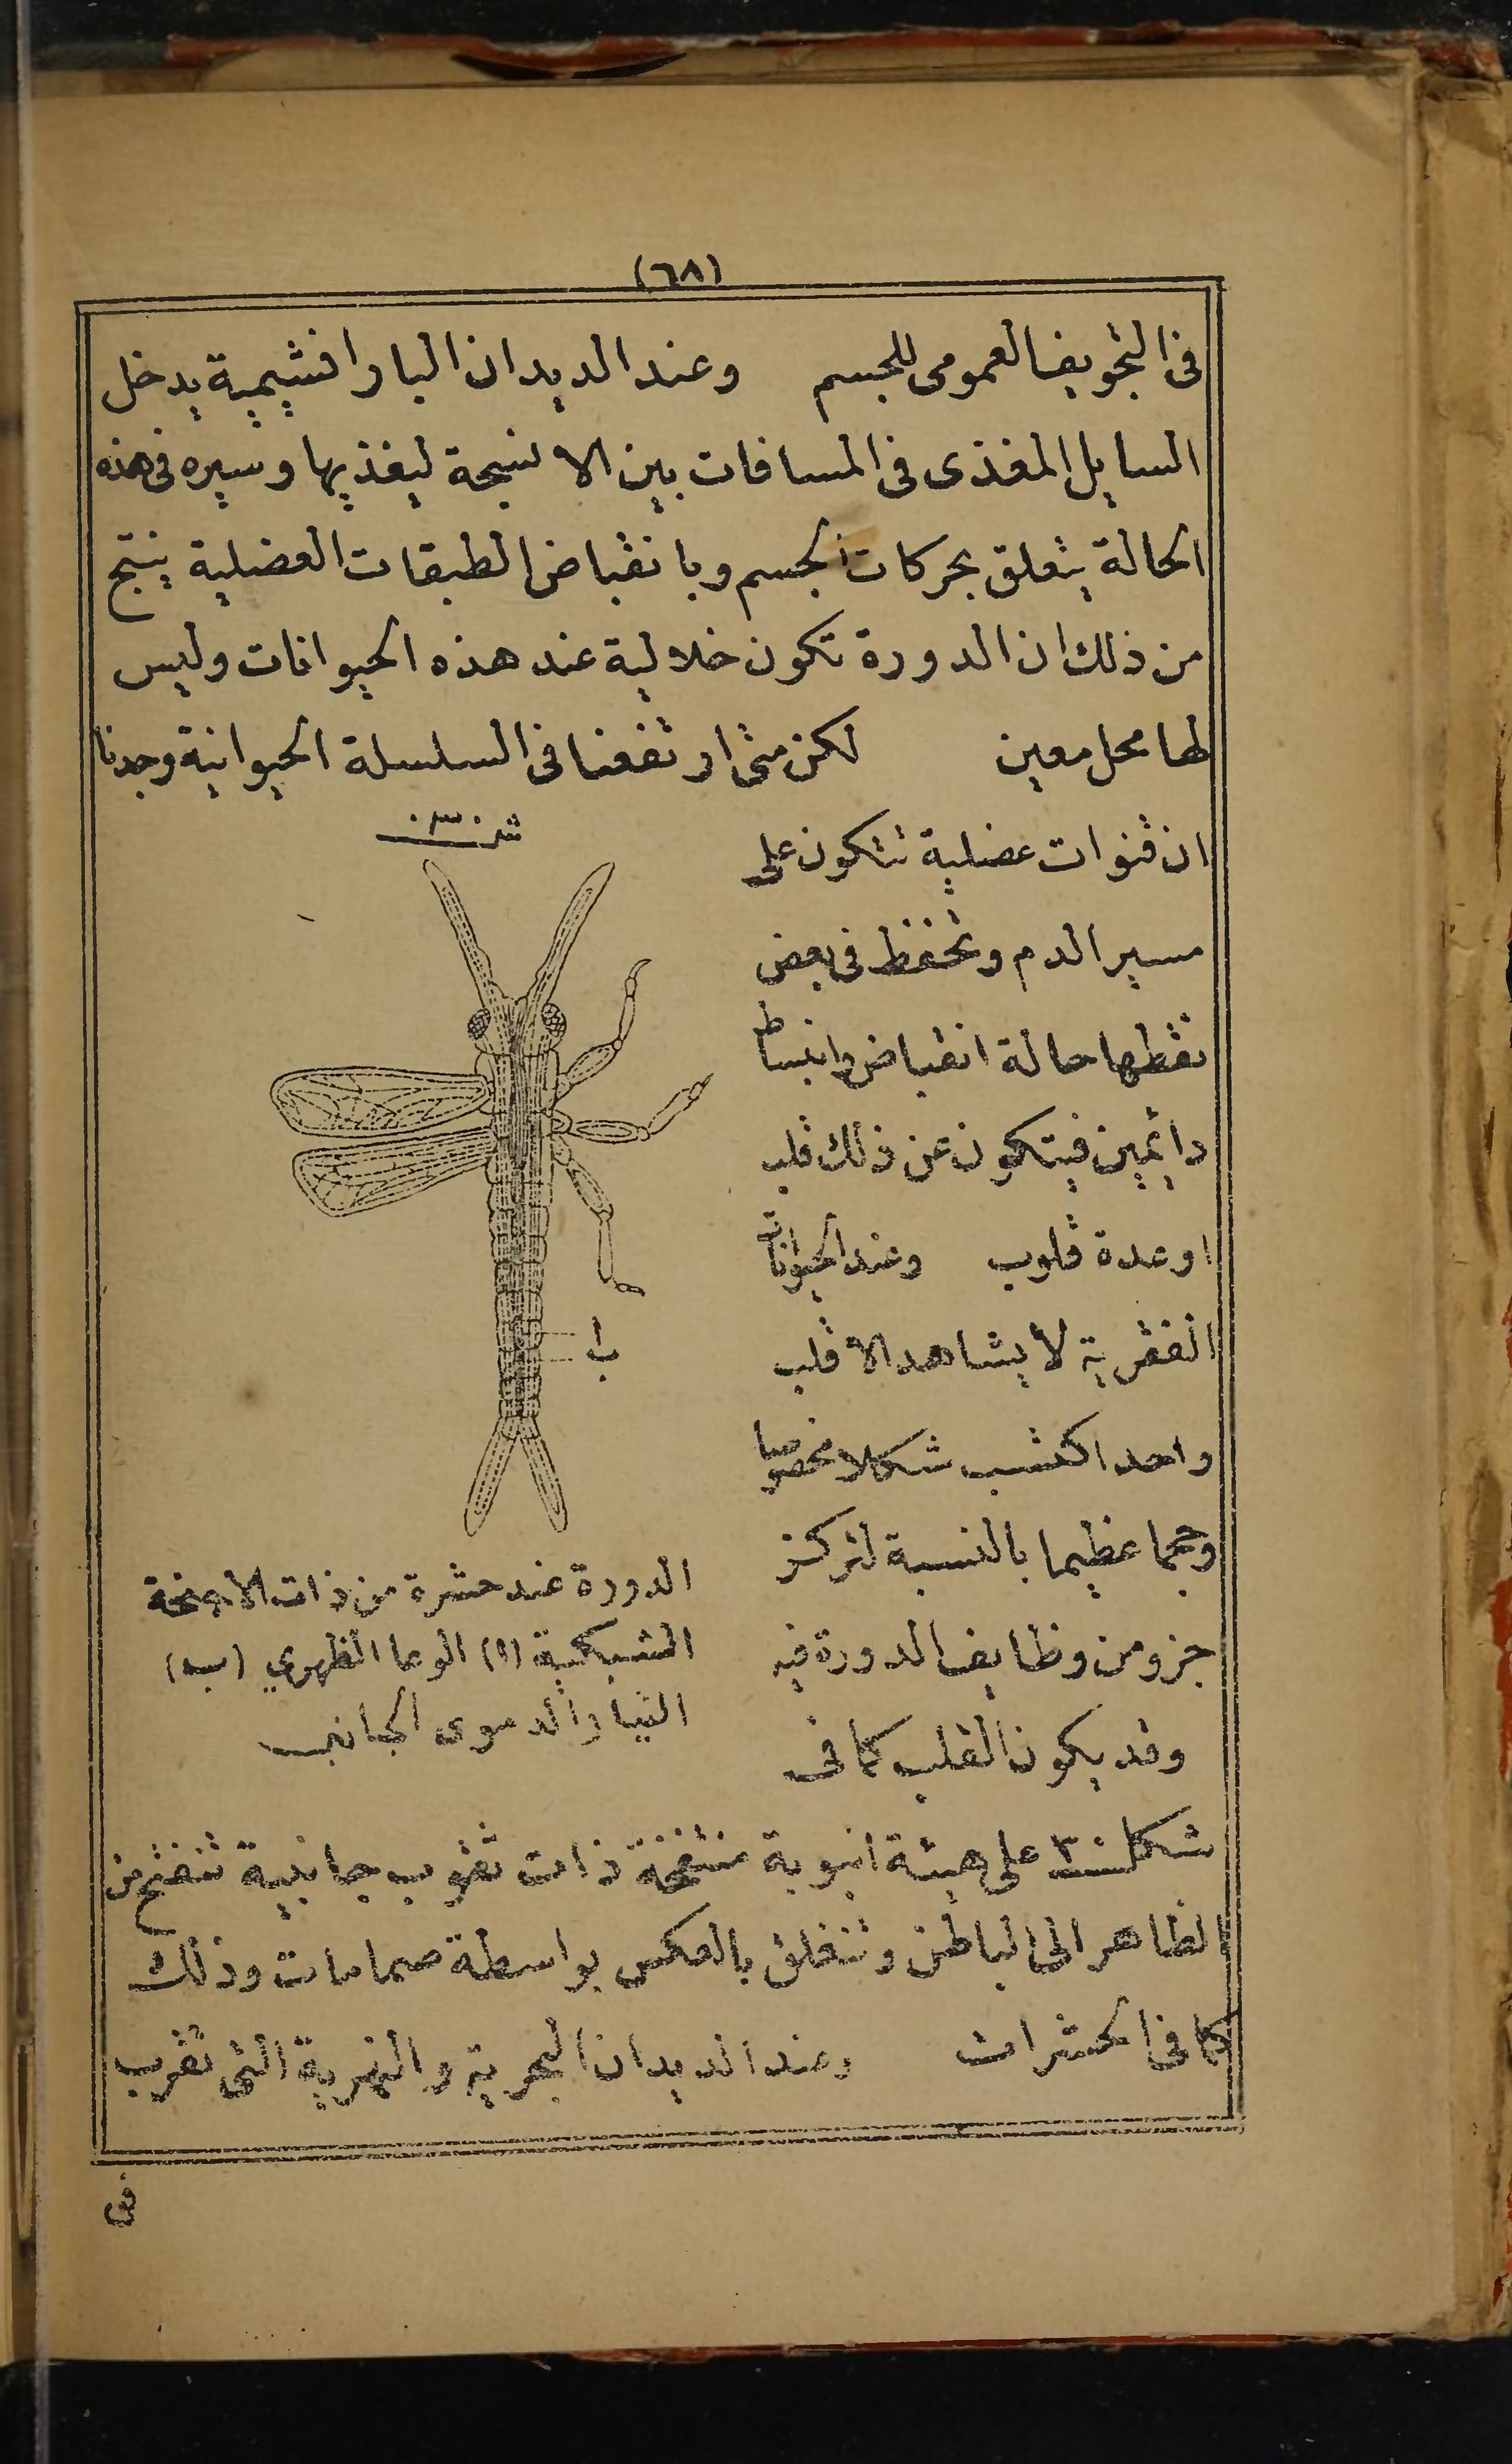 (٦٨)
فى التجويف العمومى للجسم وعند الديدان البارانشيمية يدخل
السايل المغذى فى المسافات بين الانسجة ليغذيها وسيره فى هذه
الحالة يتعلق بحركات الجسم وبانقباض الطبقات العضلية ينتج
من ذلك ان الدورة تكون خلالية عند هذه الحيوانات وليس
لها محل معين لكن متى ارتفعنا فى السلسلة الحيوانية وجدنا
ان قنوات عضلية تتكون على
مسير الدم وتحفظ فى بعض
نقطها حالة انقباض وانبساط
دايمين فيتكون عن ذلك قلب
او عدة قلوب وعند الحيوانات
الفقرية لا يشاهد الا قلب
واحد اكتسب شكلا مخصوصا
وحجما عظيما بالنسبة لتركز
جزو من وظايف الدورة فيه
وقد يكون القلب كما فى
شكل ٣٠
ا
ب
الدورة عند حشرة من ذات الاجنحة
الشبكية (ا) الوعا الظهري (ب)
التيار الدموى الجانبى
شكل ٣٠ على هيئة انبوبة منتفخة ذات ثقوب جانبية تنفتح من
الظاهر الى الباطن وتنغلق بالعكس بواسطة صمامات وذلك
كما فى الحشرات وعند الديدان البحرية والنهرية التى تقرب
فى